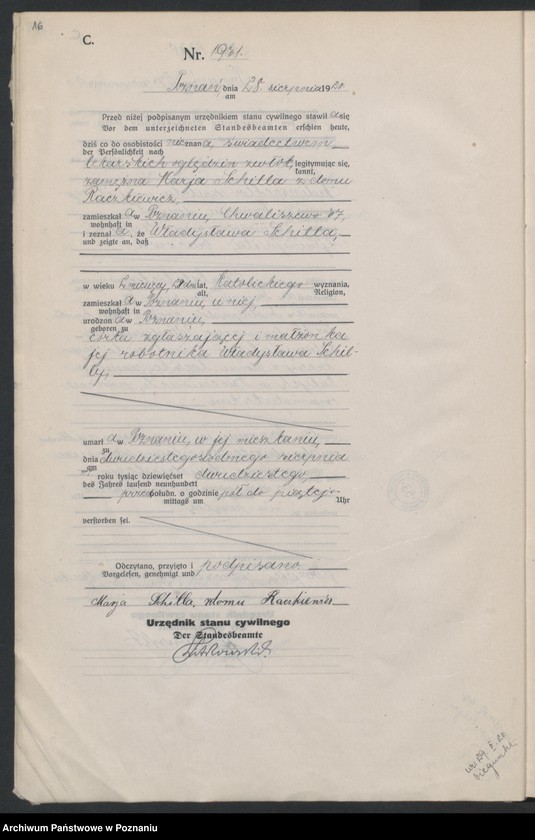 16
C.
Nr. 1931.
Poznań, dnia 28. sierpnia 1920
am
Przed niżej podpisanym urzędnikiem stanu cywilnego stawił a się
Vor dem unterzeichneten Standesbeamten erschien heute,
dziś co do osobistości nieznana, świadectwem
der Persönlichkeit nach
lekarskich oględzin zwłok, legitymując się,
kannt,
zamężna Marja Schilla z domu
Raczkiewicz,
zamieszkał a w Poznaniu, Chwaliszewo 47,
wohnhaft in
i zeznał a, że Władysława Schilla,
und zeigte an, daß
w wieku 2 miesięcy, dni lat, katolickiego wyznania,
alt, Religion,
zamieszkał a w Poznaniu u niej,
wohnhaft in
urodzon a w Poznaniu,
geboren zu
córka zgłaszającej i małżonka
jej robotnika Władysława Schil-
ly,
umarł a w Poznaniu, w jej mieszkaniu,
zu
dnia dwudziestegosiódmego sierpnia
am
roku tysiąc dziewięćset dwudziestego,
des Jahres tausend neunhundert
przed połudn. o godzinie pół do piątej
mittags um Uhr
verstorben sei.
Odczytano, przyjęto i podpisano
Vorgelesen, genehmigt und
Marja Schilla, zdomu Raczkiewicz
Urzędnik stanu cywilnego
Der Standesbeamte
Archiwum Państwowe w Poznaniu